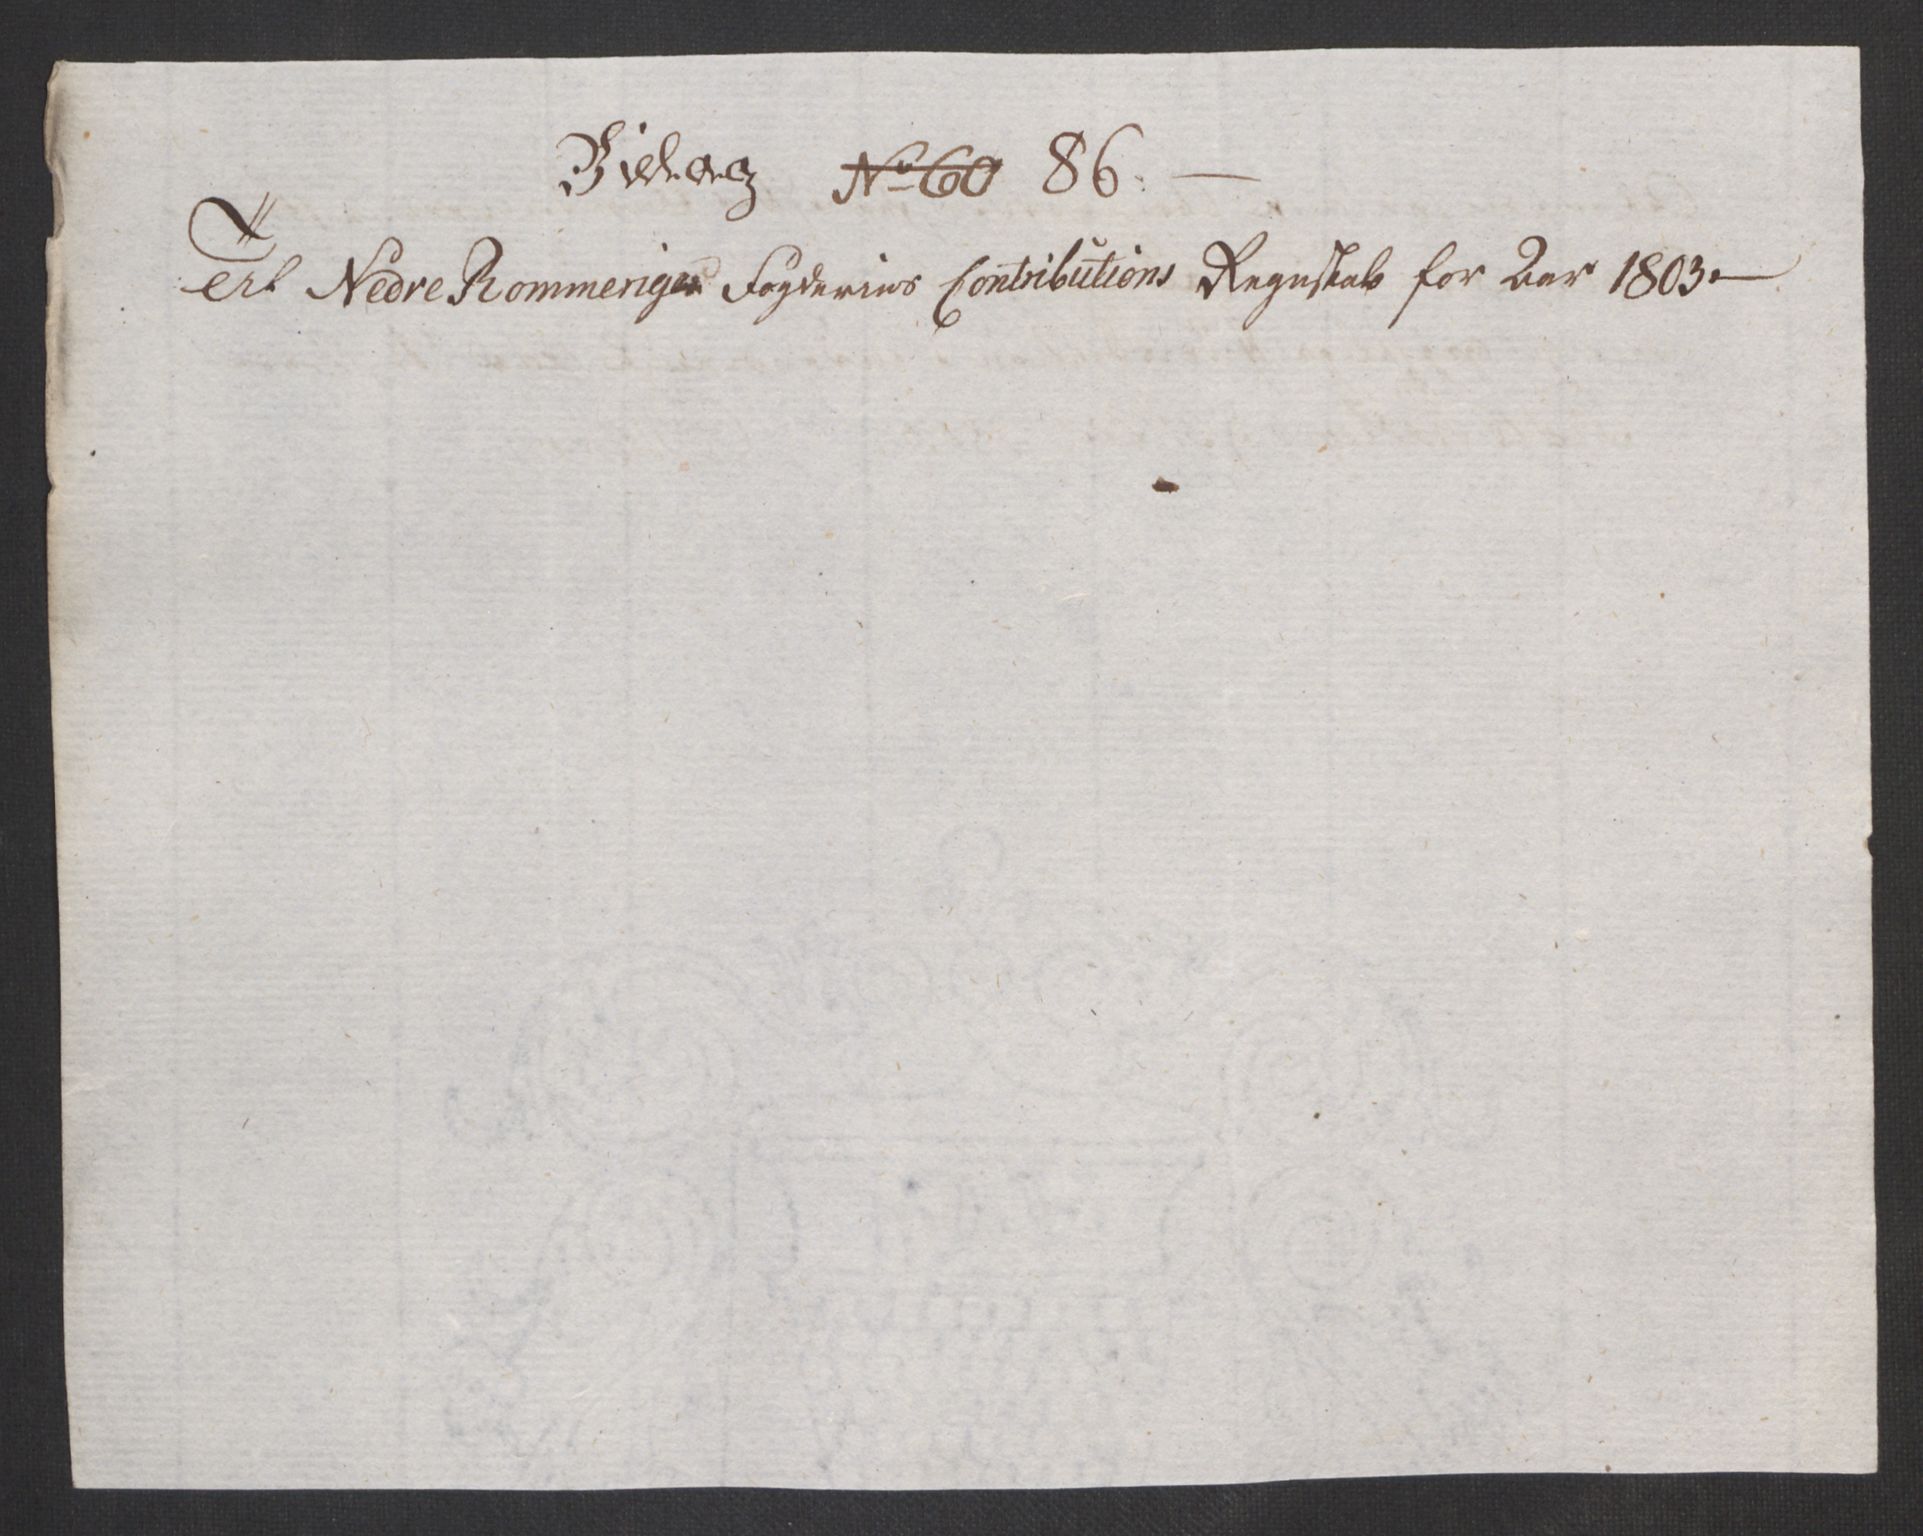 Bielaag No 60 86. —
Til Nedre Rommeriges Fogderies Contributions Regnskab for Aar 1803. —